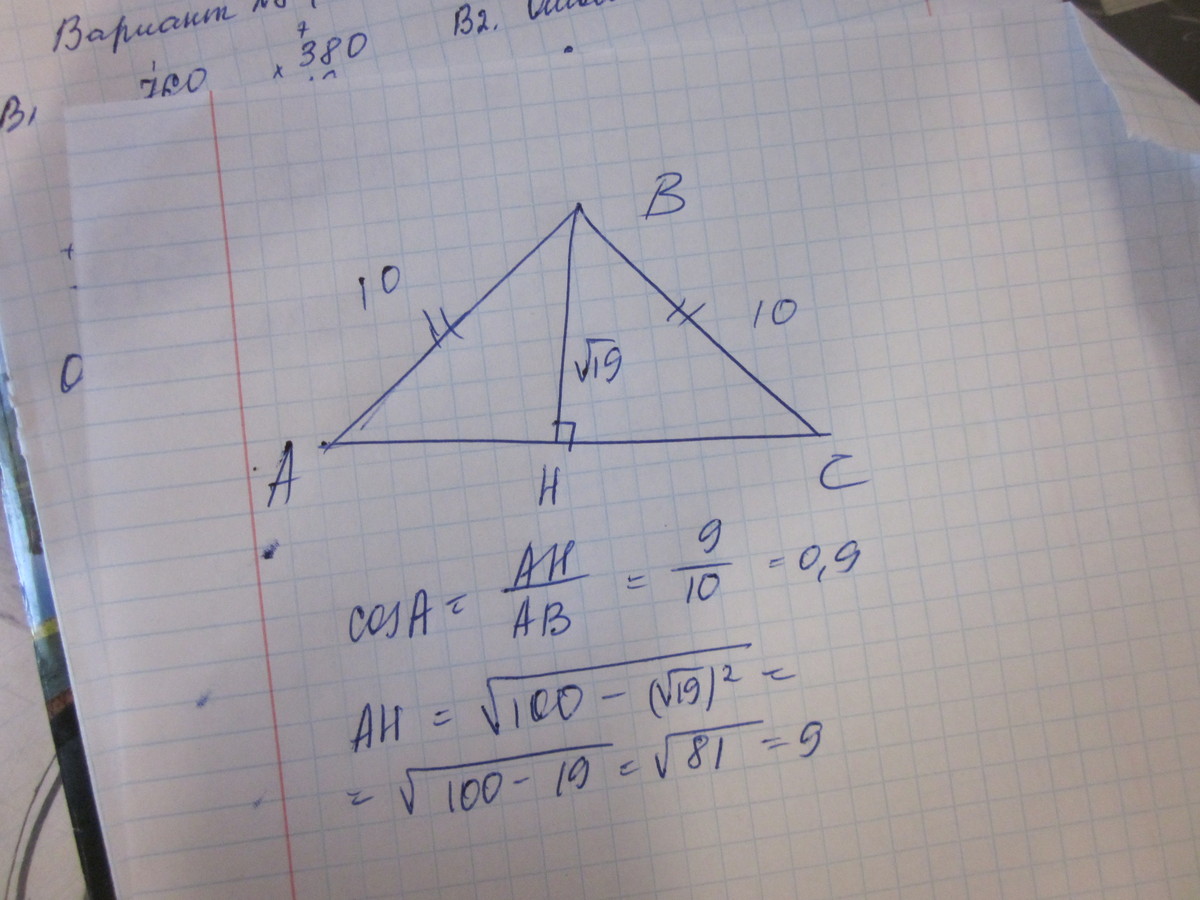 Вариант
B2.
380
×
760
B1
B
10
10
√19
A
H
C
cosA = AH/AB = 9/10 = 0,9
AH = √100 - (√19)² =
= √100 - 19 = √81 = 9